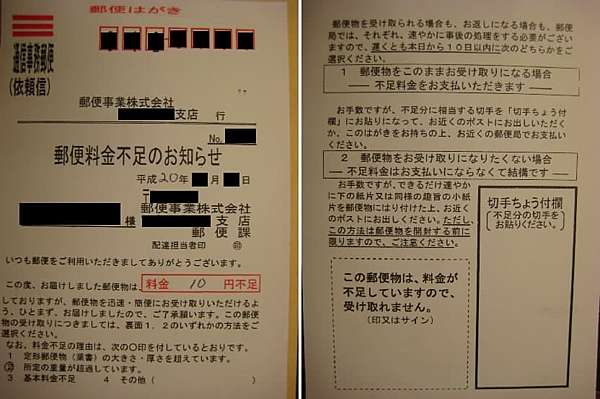 郵便はがき
通信事務郵便
(依頼信)
郵便事業株式会社
支店 行
No.
郵便料金不足のお知らせ
平成 20年 月 日
〒
郵便事業株式会社
様 支店
郵便課
配達担当者印 ㊞
いつも郵便をご利用いただきましてありがとうございます。
この度、お届けしました郵便物は、料金 10 円不足
しておりますが、郵便物を迅速・簡便にお受け取りいただけるよ
う、ひとまず、お届けしましたので、ご了承願います。この郵便
物の受け取りにつきましては、裏面1、2のいずれかの方法をご
選択ください。
なお、料金不足の理由は、次の○印を付しているとおりです。
1 定形郵便物(葉書)の大きさ・厚さを超えています。
② 所定の重量が超過しています。
3 基本料金不足 4 その他( )
郵便物を受け取られる場合も、お返しになる場合も、郵便
局では、それぞれ、速やかに事後の処理をする必要がござい
ますので、遅くとも本日から10日以内に次のどちらかをご
選択ください。
1 郵便物をこのままお受け取りになる場合
── 不足料金をお支払いいただきます ──
お手数ですが、不足分に相当する切手を「切手ちょう付
欄」にお貼りになって、お近くのポストにお出しいただく
か、このはがきをお持ちの上、お近くの郵便局でお支払い
ください。
2 郵便物をお受け取りになりたくない場合
─ 不足料金はお支払いにならなくて結構です ─
お手数ですが、できるだけ速やか
に下の紙片又は同様の趣旨の小紙
片を郵便物にはり付けた上、お近く
のポストにお出しください。ただし、
この方法は郵便物を開封する前に
限りますので、ご注意ください。
この郵便物は、料金が
不足していますので、
受け取れません。
(印又はサイン)
切手ちょう付欄
(不足分の切手を
お貼りください。)